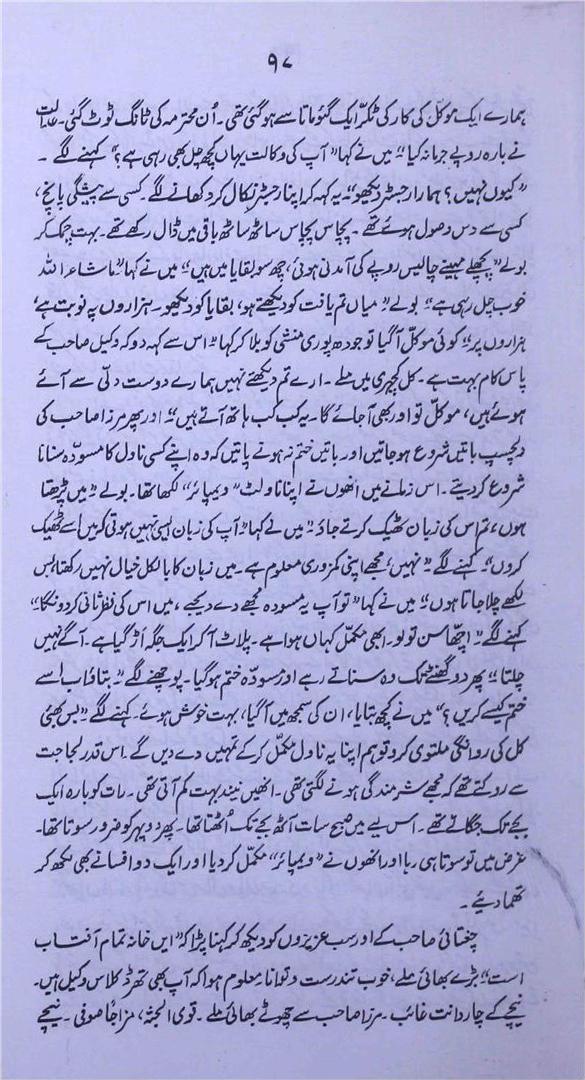 ۹۷
ہمارے ایک موکل کی کار کی ٹکر ایک گئوماتا سے ہو گئی تھی۔ اُن محترمہ کی ٹانگ ٹوٹ گئی۔ عدالت
نے بارہ روپے جرمانہ کیا“ میں نے کہا ”آپ کی وکالت یہاں کچھ چل بھی رہی ہے؟“ کہنے لگے۔
”کیوں نہیں؟ ہمارا رجسٹر دیکھو“۔ یہ کہہ کر اپنا رجسٹر نکال کر دکھانے لگے۔ کسی سے پیشگی پانچ،
کسی سے دس وصول ہوئے تھے۔ پچاس پچاس ساٹھ ساٹھ باقی میں ڈال رکھے تھے۔ بہت چمک کر
بولے ”پچھلے مہینے چالیس روپے کی آمدنی ہوئی، چھ سو بقایا میں ہیں“ میں نے کہا ”ماشاء اللہ
خوب چل رہی ہے“ بولے ”میاں تم یافت کو دیکھتے ہو، بقایا کو دیکھو۔ ہزاروں پہ نوبت ہے،
ہزاروں پر“ کوئی موکل آ گیا تو جودھپوری منشی کو بلا کر کہا ”اس سے کہہ دو کہ وکیل صاحب کے
پاس کام بہت ہے۔ کل کچہری میں ملے۔ ارے تم دیکھتے نہیں ہمارے دوست دلّی سے آئے
ہوئے ہیں، موکل تو اور بھی آ جائے گا۔ یہ کب کب ہاتھ آتے ہیں“۔ اور پھر مرزا صاحب کی
دلچسپ باتیں شروع ہو جاتیں اور باتیں ختم نہ ہونے پاتیں کہ وہ اپنے کسی ناول کا مسودّہ سنانا
شروع کر دیتے۔ اس زمانے میں انھوں نے اپنا ناولٹ ”ویمپائر“ لکھا تھا۔ بولے ”میں پڑھتا
ہوں، تم اس کی زبان ٹھیک کرتے جاؤ“ میں نے کہا ”آپ کی زبان ایسی نہیں ہوتی کہ میں اسے ٹھیک
کروں“۔ کہنے لگے ”نہیں، مجھے اپنی کمزوری معلوم ہے۔ میں زبان کا بالکل خیال نہیں رکھتا، بس
لکھے چلا جاتا ہوں“ میں نے کہا ”تو آپ یہ مسودہ مجھے دے دیجیے، میں اس کی نظرثانی کر دونگا“
کہنے لگے ”اچھا سن تو لو۔ ابھی مکمل کہاں ہوا ہے۔ پلاٹ آ کر ایک جگہ اڑ گیا ہے۔ آگے نہیں
چلتا“ پھر دو گھنٹے تک وہ سناتے رہے اور مسودّہ ختم ہو گیا۔ پوچھنے لگے ”بتاؤ اب اسے
ختم کیسے کریں؟“ میں نے کچھ بتایا، ان کی سمجھ میں آ گیا، بہت خوش ہوئے۔ کہنے لگے ”بس بھئی
کل کی روانگی ملتوی کرو تو ہم اپنا یہ ناول مکمل کر کے تمہیں دے دیں گے۔ اس قدر لجاجت
سے روکتے تھے کہ مجھے شرمندگی ہونے لگتی تھی۔ انھیں نیند بہت کم آتی تھی۔ رات کو بارہ ایک
بجے تک جگاتے تھے۔ اس لیے میں صبح سات آٹھ بجے تک اُٹھتا تھا۔ پھر دوپہر کو ضرور سوتا تھا۔
غرض میں تو سوتا ہی رہا اور انھوں نے ”ویمپائر“ مکمل کر دیا اور ایک دو افسانے بھی لکھ کر
تھما دیئے۔
چغتائی صاحب کے اور سب عزیزوں کو دیکھ کر کہنا پڑا کہ ”ایں خانہ تمام آفتاب
است“ بڑے بھائی ملے، خوب تندرست و توانا۔ معلوم ہوا کہ آپ بھی تھرڈ کلاس وکیل ہیں۔
نیچے کے چار دانت غائب۔ مرزا صاحب سے چھوٹے بھائی ملے۔ قوی الجثہ، مزاجاً صوفی۔ نیچے